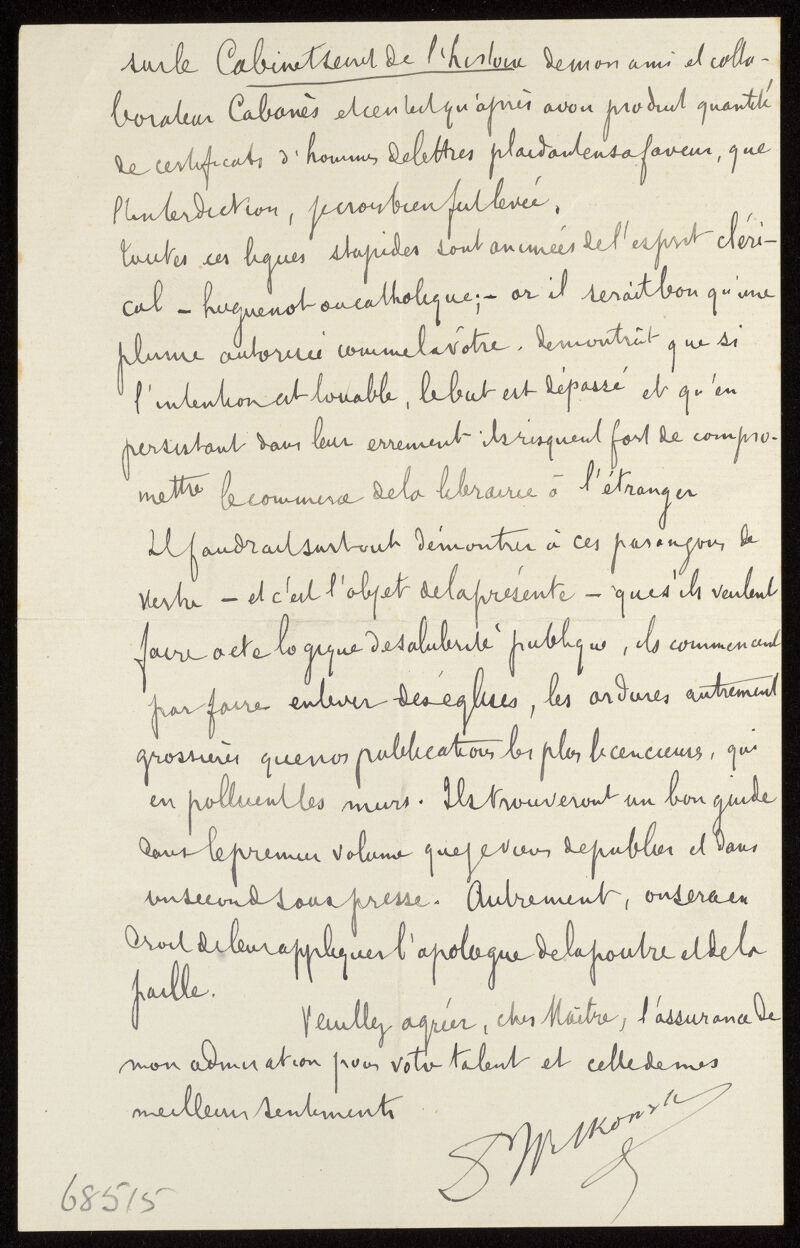 sur le Cabinet secret de l'histoire de mon ami et colla-
borateur Cabanès et ce n'est qu'après avoir produit quantité
de certificats d'hommes de lettres plaidant en sa faveur, que
l'interdiction, je crois bien fut levée.
Toutes ces ligues stupides sont animées de l'esprit cléri-
cal – huguenot ou catholique; – or il serait bon qu'une
plume autorisée comme la vôtre. démontrât que si
l'intention est louable, le but est dépassé et qu'en
persistant dans leur errement ils risquent fort de compro-
mettre le commerce de la librairie à l'étranger
Il faudrait surtout démontrer à ces parangons de
vertu – et c'est l'objet de la présente – que s'ils veulent
faire acte logique de salubrité publique, ils commencent
par faire enlever des églises, les ordures autrement
grossières que nos publications les plus licencieuses, qui
en polluent les murs. Ils trouveront un bon guide
dans le premier volume que je viens de publier et dans
un second sous presse. Autrement, on sera en
droit de leur appliquer l'apologue de la poutre et de la
paille.
Veuillez agréer, cher Maître, l'assurance de
mon admiration pour votre talent et celle de mes
meilleurs sentiments
Dr Witkowski
68515